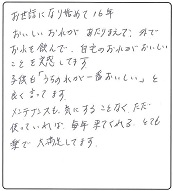 お世話になり始めて16年
おいしいお水があたりまえで、外で
お水を飲んで、自宅のお水がおいしい
ことを実感してます。
子供も「うちのお水が一番おいしい」と
良く言ってます。
メンテナンスも、気にすることなく、ただ
使っていれば、毎年来てくれる。とても
楽で大満足してます。